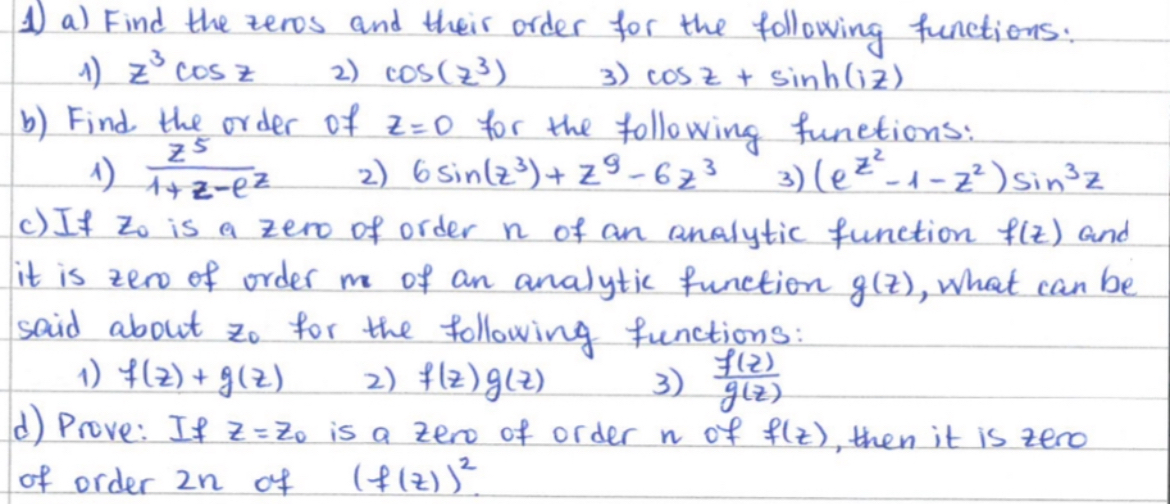 1) a) Find the zeros and their order for the following functions:
1) z³ cos z 2) cos(z³) 3) cos z + sinh(iz)
b) Find the order of z=0 for the following functions:
1) z⁵/(1+z-e^z) 2) 6 sin(z³)+z⁹-6z³ 3) (e^{z²}-1-z²) sin³z
c) If z₀ is a zero of order n of an analytic function f(z) and
it is zero of order m of an analytic function g(z), what can be
said about z₀ for the following functions:
1) f(z)+g(z) 2) f(z)g(z) 3) f(z)/g(z)
d) Prove: If z=z₀ is a zero of order n of f(z), then it is zero
of order 2n of (f(z))².